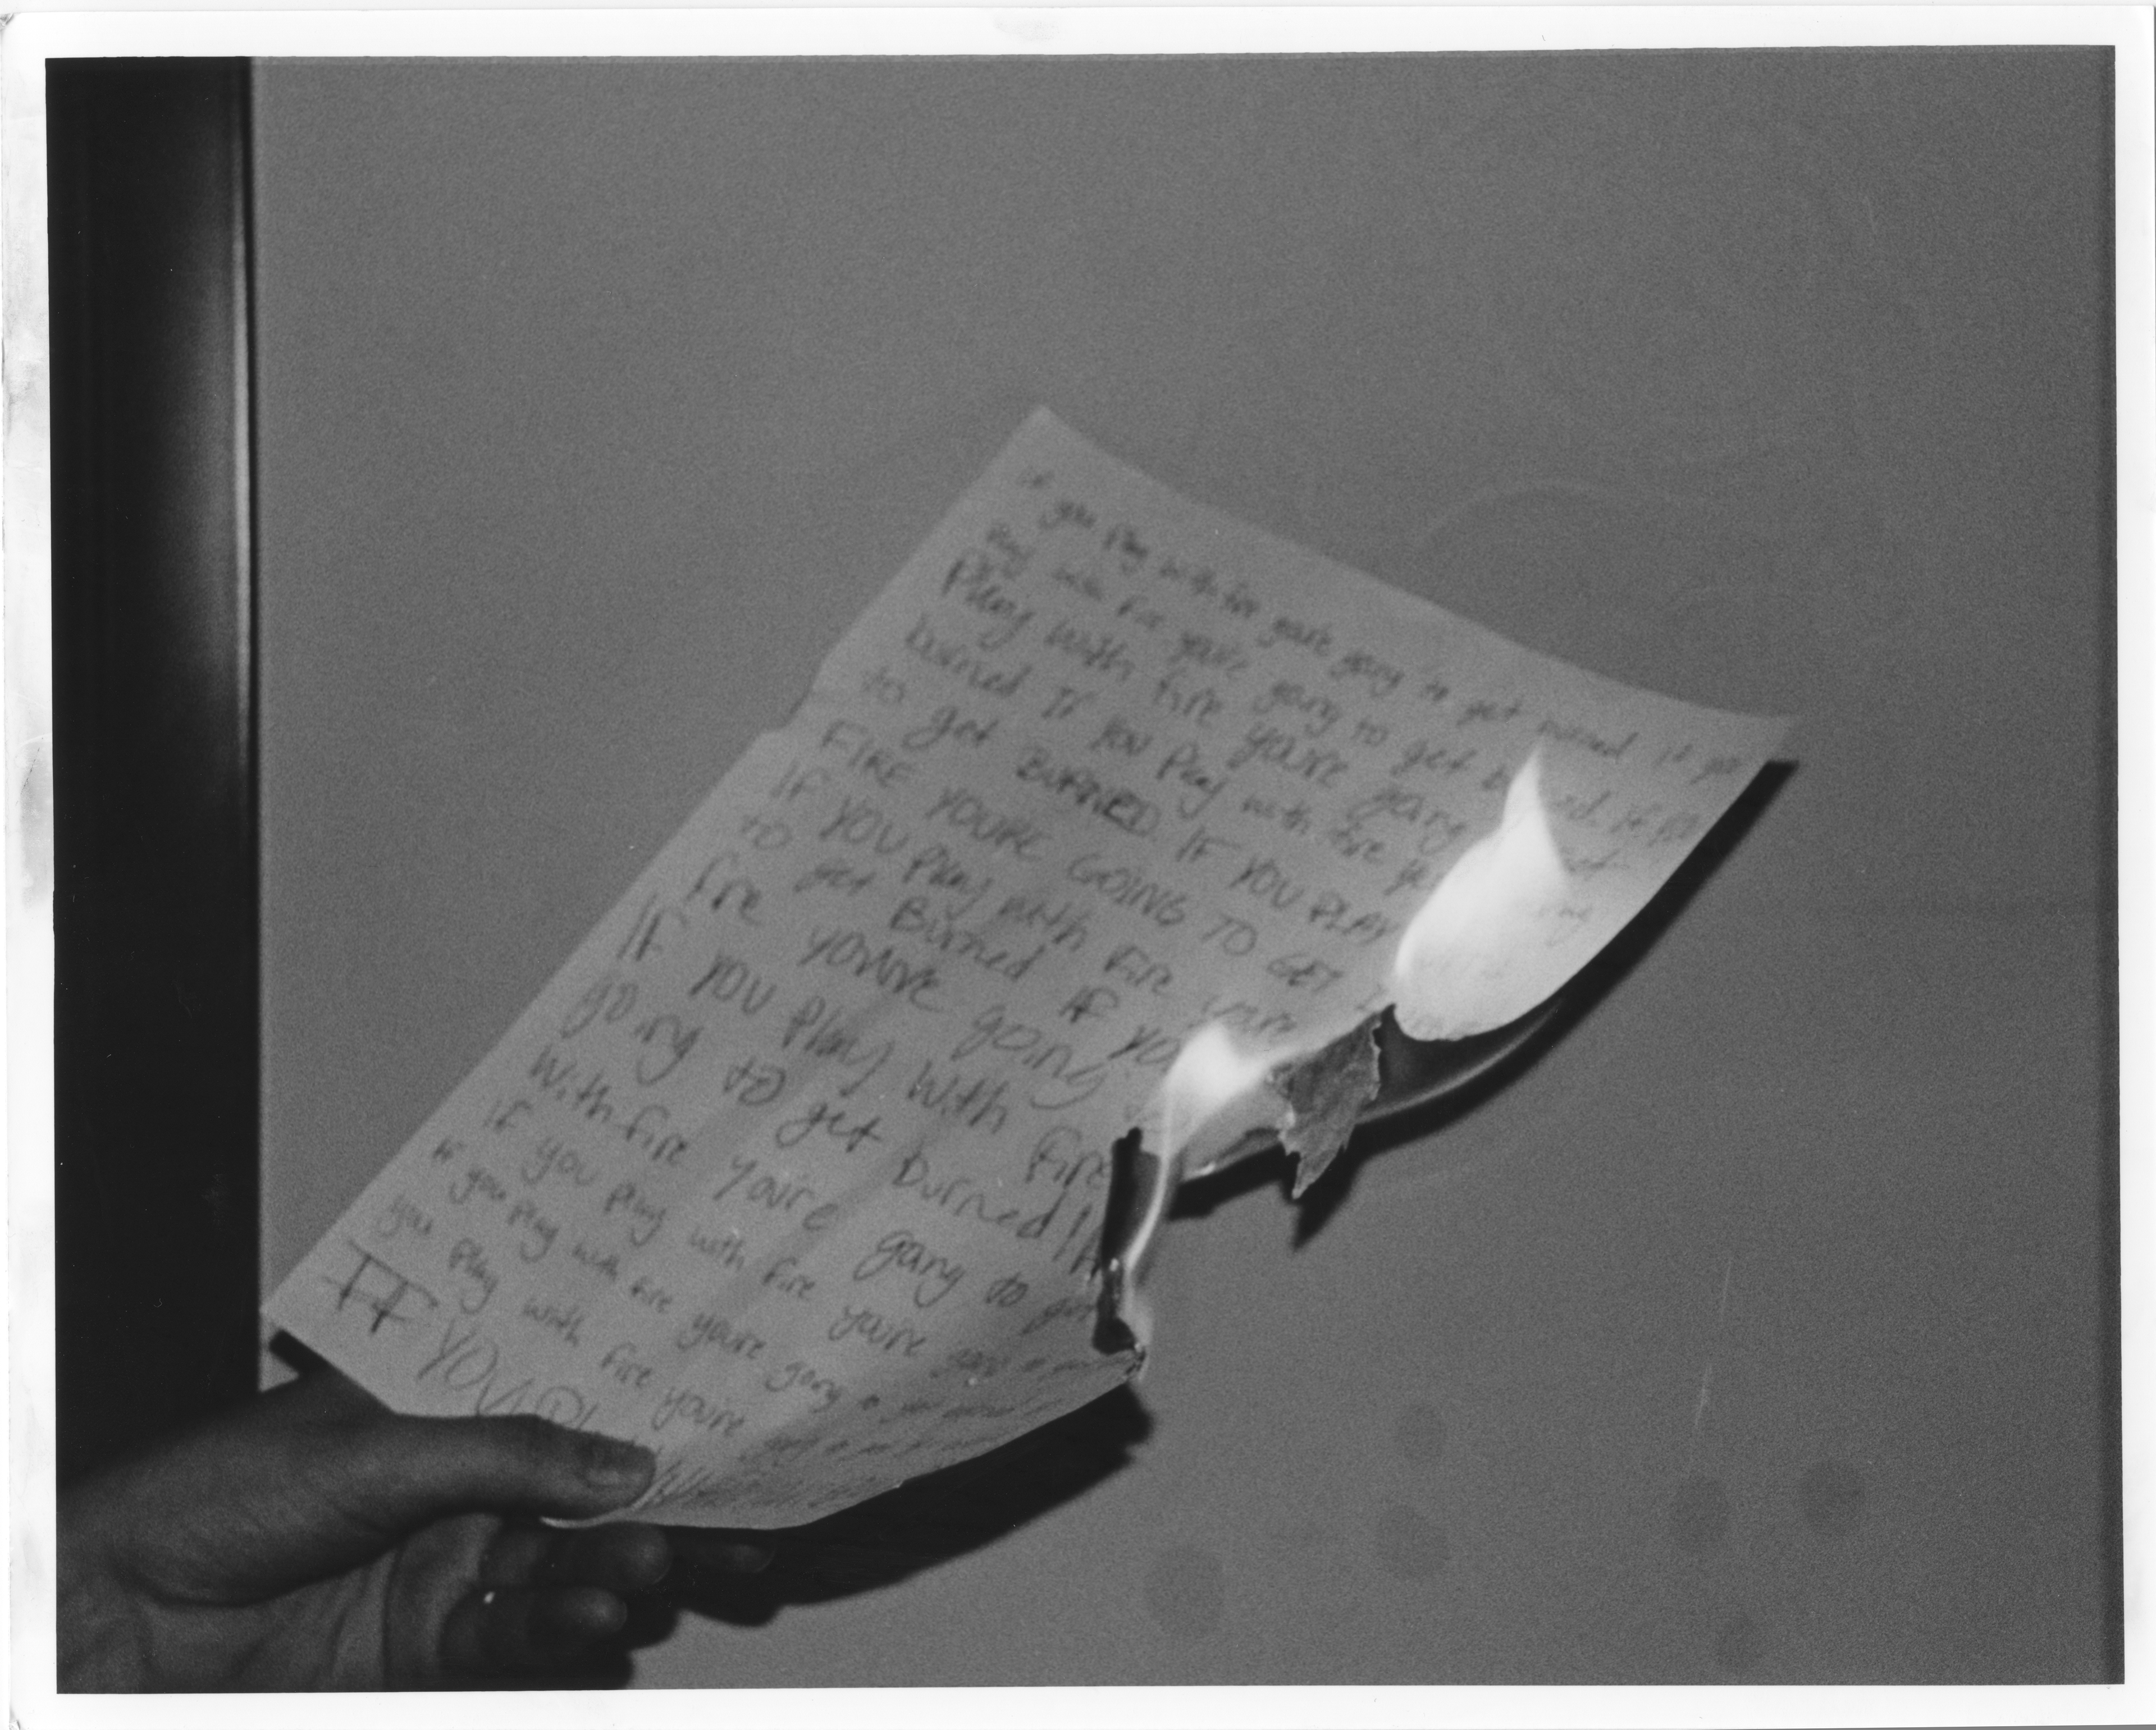 if you play with fire you're going to get burned if you
play with fire you're going to get b ned. if you
Play with fire you're going get
burned If you Play with fire yo
to get BURNED. IF YOU PLAY
FIRE YOU'RE GOING TO GET
IF YOU Play with Fire you're
to get Burned IF yo
fire you're going
IF YOU Play With Fire
going to get burned!
With fire you're going to get
If you play with fire you're
If you play with fire you're going
you play with fire you're
IF YOU PL